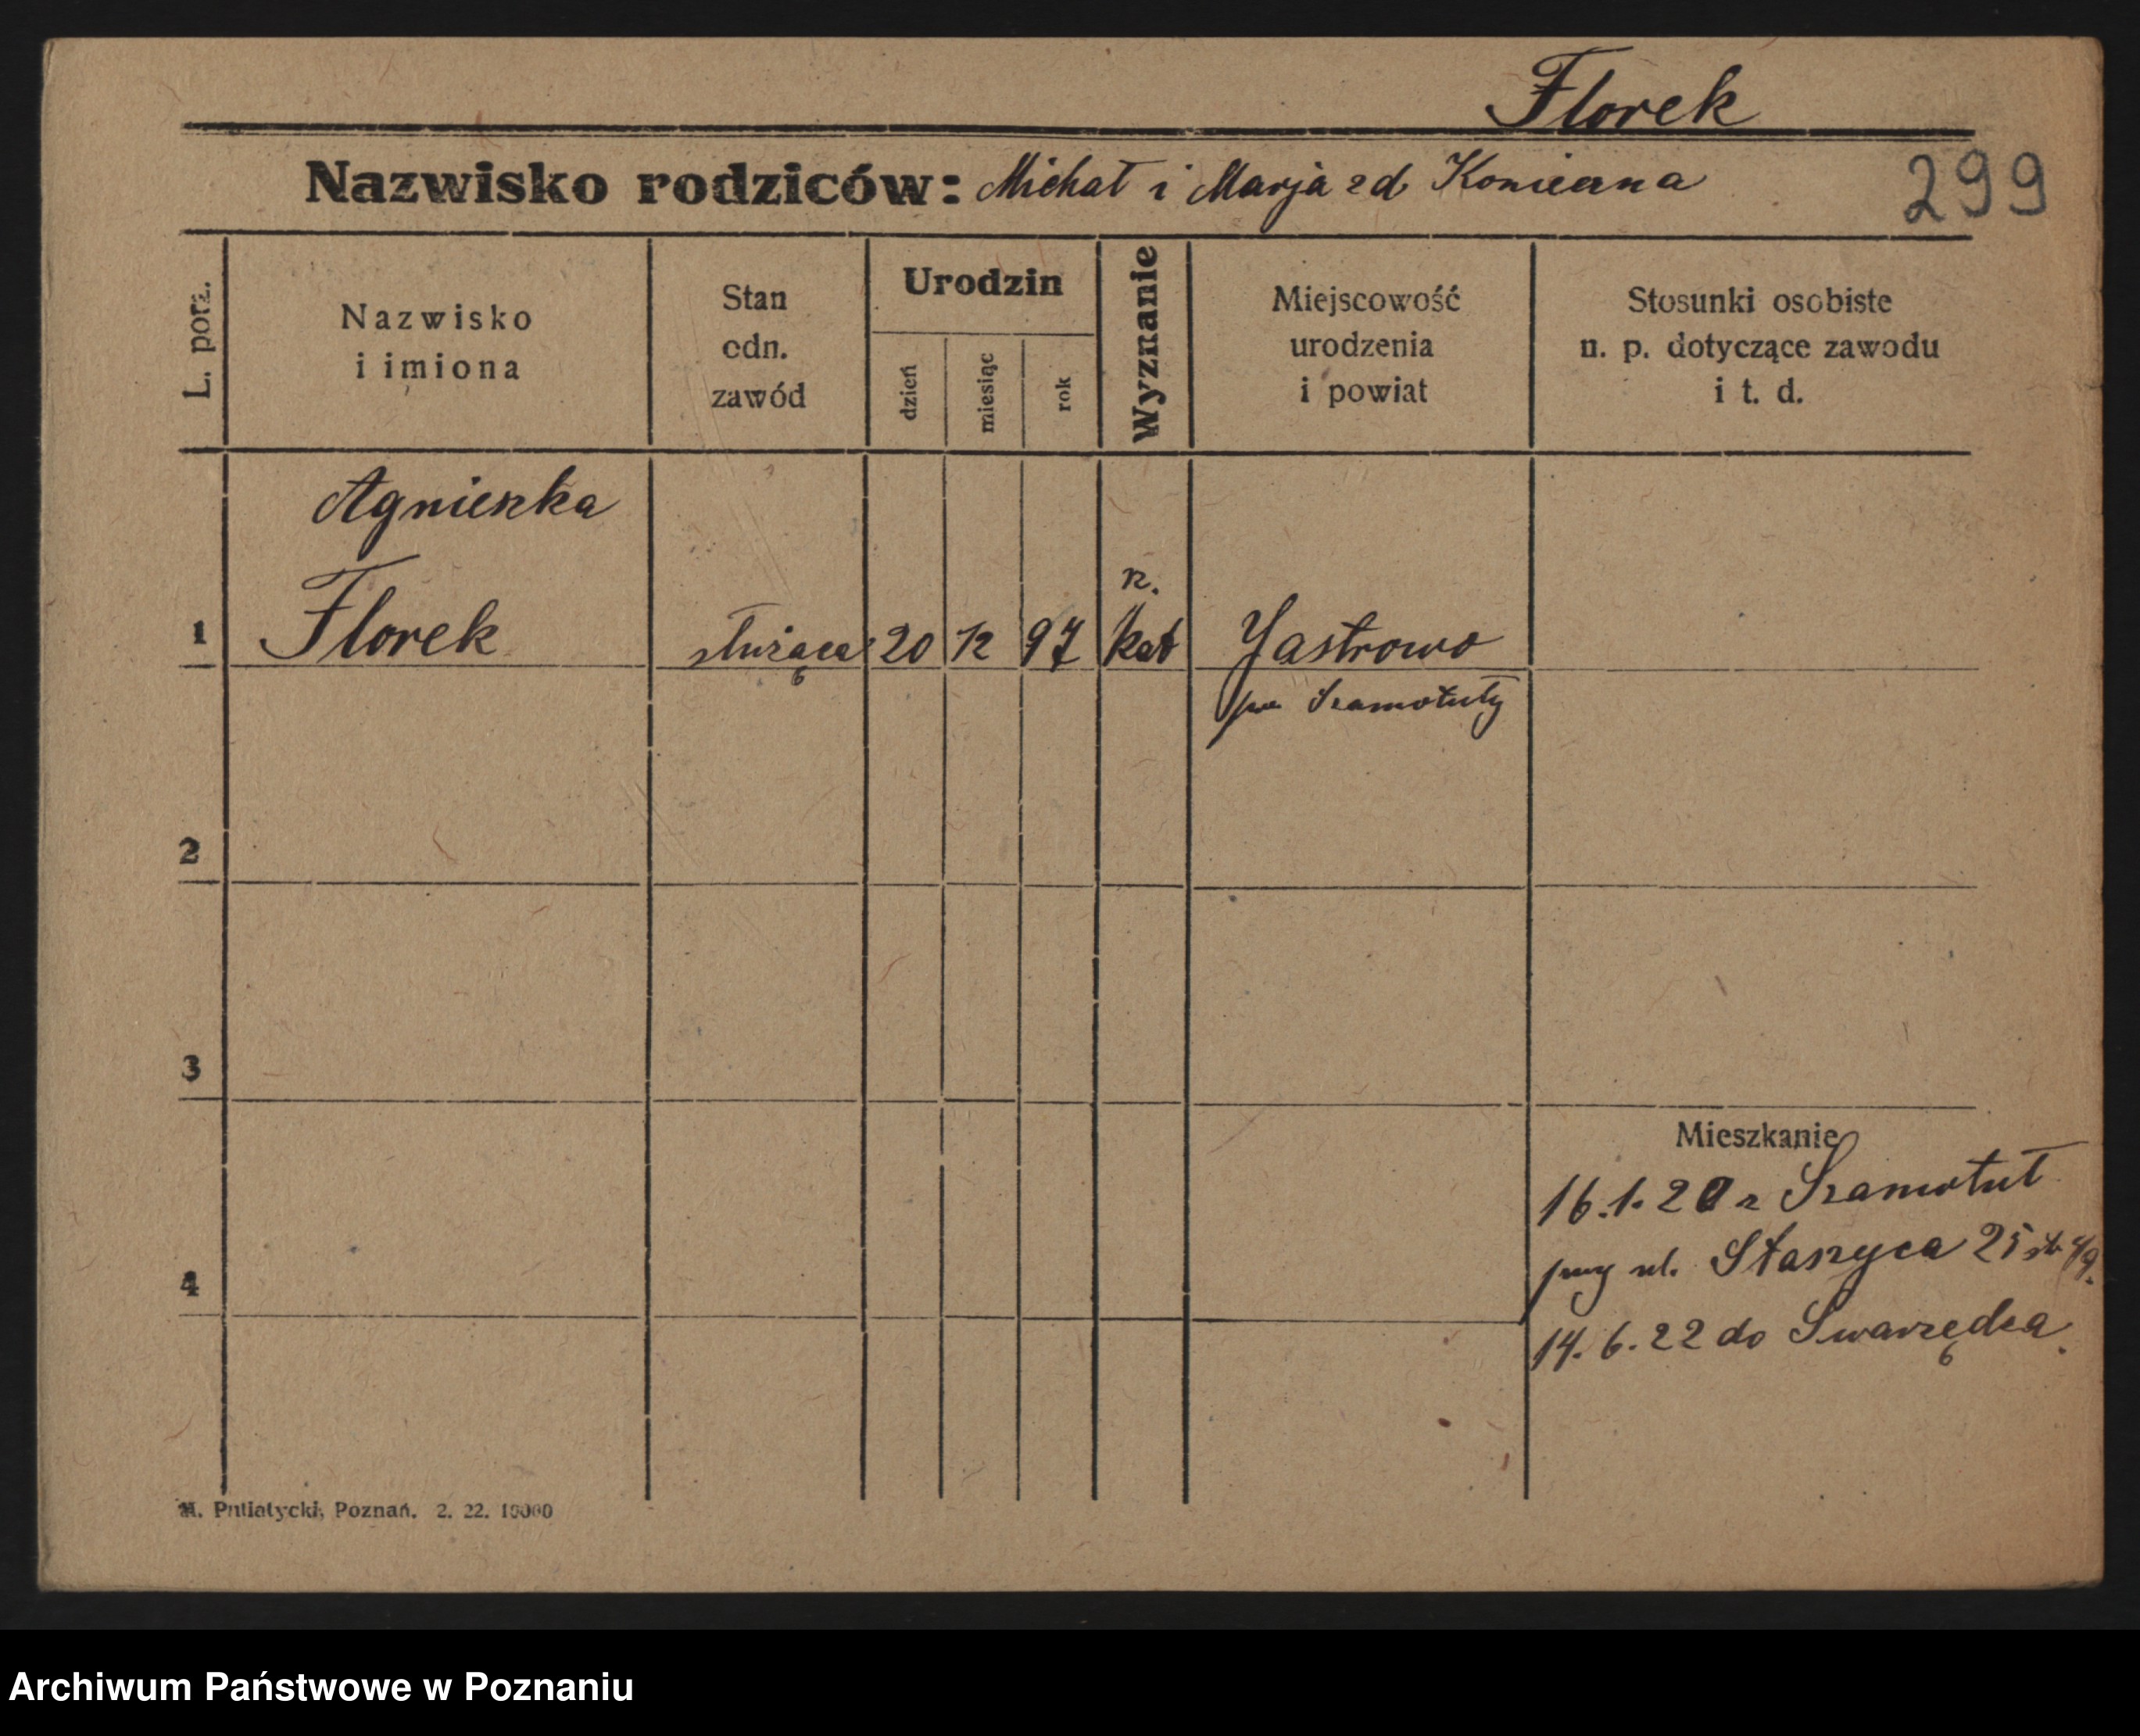 Florek
Nazwisko rodziców: Michał i Marja zd
299
L. porz.
Nazwisko
i imiona
Stan
odn.
zawód
Urodzin
dzień
miesiąc
rok
Wyznanie
Miejscowość
urodzenia
i powiat
Stosunki osobiste
n. p. dotyczące zawodu
i t. d.
Agnieszka
1 Florek służąca 20 12 97 rz. kat Jastrowo
pow Szamotuły
2
3
4
Mieszkanie
16.1.20 z Szamotuł
przy ul. Staszyca 25
14.6.22 do Swarzędza.
M. Putiatycki, Poznań. 2. 22. 10000
Archiwum Państwowe w Poznaniu